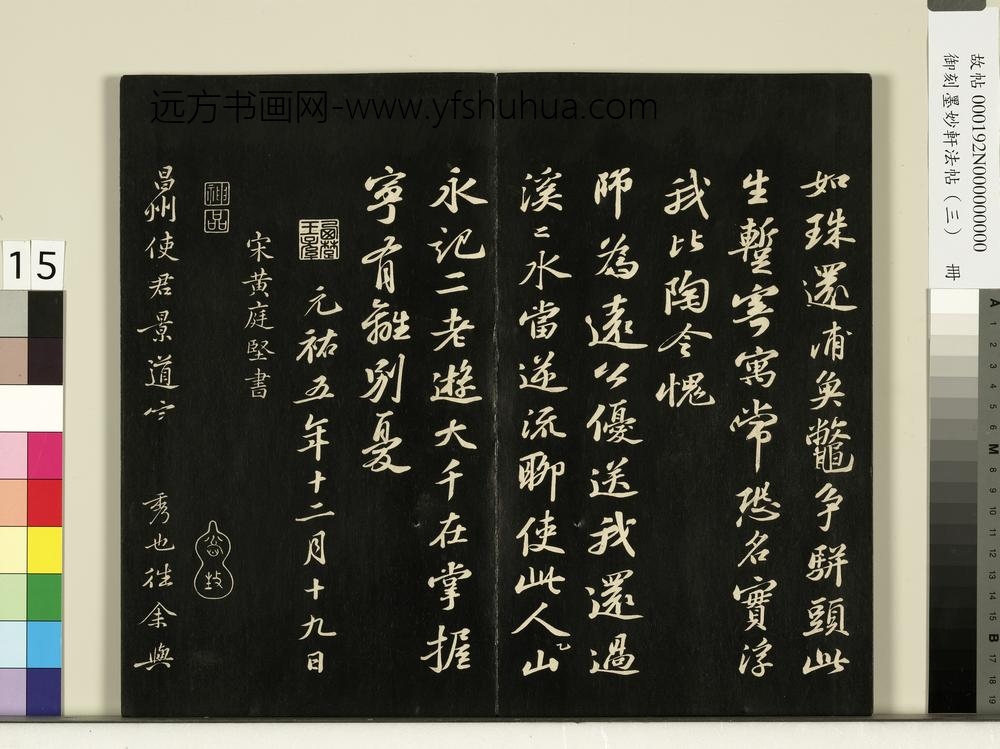 远方书画网-www.yfshuhua.com
故帖000192N000000000
御刻墨妙軒法帖（三） 冊
15
如珠還浦魚鼈爭駢頭此
生蹔寄寓常恐名實浮
我比陶令愧
師為遠公優送我還過
溪〻水當逆流聊使此人山
永記二老遊大千在掌握
寧有離別憂
元祐五年十二月十九日
宋黃庭堅書
神品
昌州使君景道宗 秀也往余與